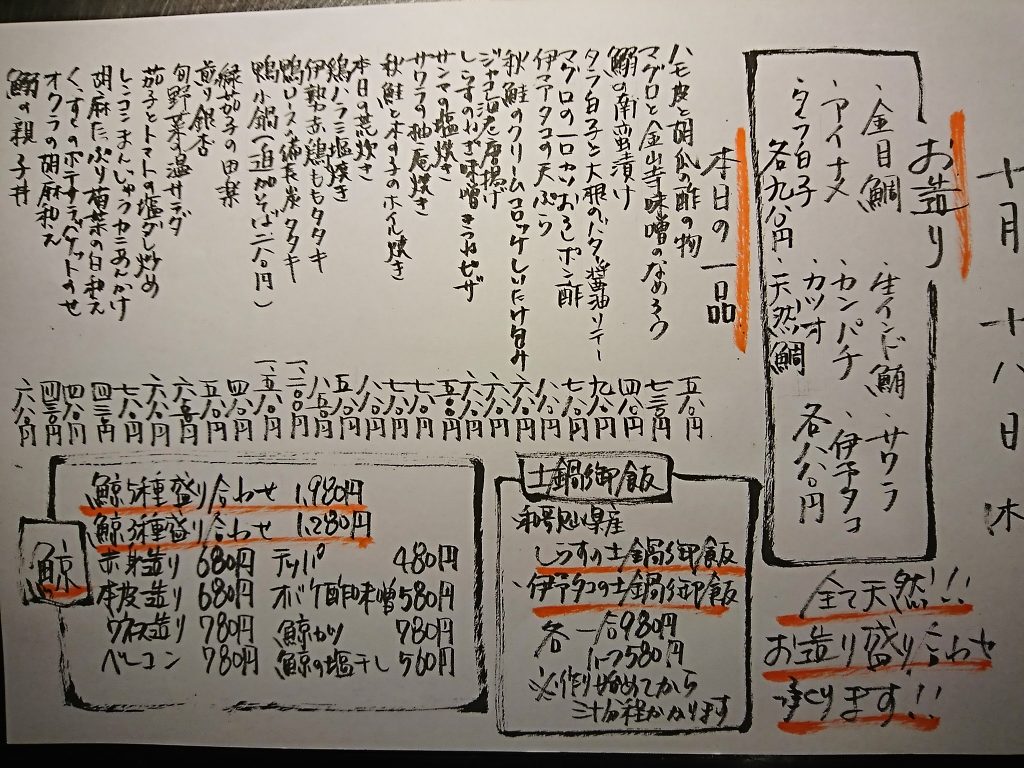 十月十八日 木
お造り
・金目鯛 ・生インド鮪 ・サワラ
・アイナメ ・カンパチ ・伊予タコ
・タラ白子 カツオ 各八八〇円
各九八〇円 ・天然鯛
全て天然!!
お造り盛り合わせ
承ります!!
本日の一品
ハモ皮と胡瓜の酢の物 五八〇円
マグロと金山寺味噌のなめろう 七三〇円
鰯の南蛮漬け 四八〇円
タラ白子と大根のバタ醤油ソテー 九八〇円
マグロの一口カツおろしポン酢 七八〇円
イイダコの天ぷら 八八〇円
秋鮭のクリームコロッケしいたけ包み 六八〇円
ジャコ海老唐揚げ 六八〇円
しらすのねぎ味噌きつねピザ 五八〇円
サンマの塩焼き 七八〇円
サワラの柚庵焼き 七八〇円
秋鮭と木の子のホイル焼き 八八〇円
本日の荒炊き 五八〇円
鶏ハラミ塩焼き 八五〇円
伊勢赤鶏ももタタキ
鴨ロース備長炭タタキ 一、二〇〇円
鴨小鍋(追加そば二八〇円) 一、五八〇円
緑茄子の田楽 四八〇円
煎り銀杏 五八〇円
旬野菜の温サラダ 六八〇円
茄子とトマトの塩ダレ炒め 六八〇円
レンコンまんじゅうカニあんかけ 七八〇円
胡麻たっぷり菊菜の白和え 四三〇円
くんせいのポテサラバゲットのせ 四八〇円
オクラの胡麻和え 四三〇円
鰯の親子丼 六八〇円
土鍋御飯
和歌山県産
しらすの土鍋御飯
・伊予タコの土鍋御飯
各 一合980円
1.5 1580円
※作り始めてから
三十分程かかります
鯨
鯨5種盛り合わせ 1,980円
鯨3種盛り合わせ 1,280円
赤身造り 680円 テッパ 480円
本皮造り 680円 オバケ酢味噌 580円
ウネス造り 780円 鯨カツ 780円
ベーコン 780円 鯨の塩干し 560円